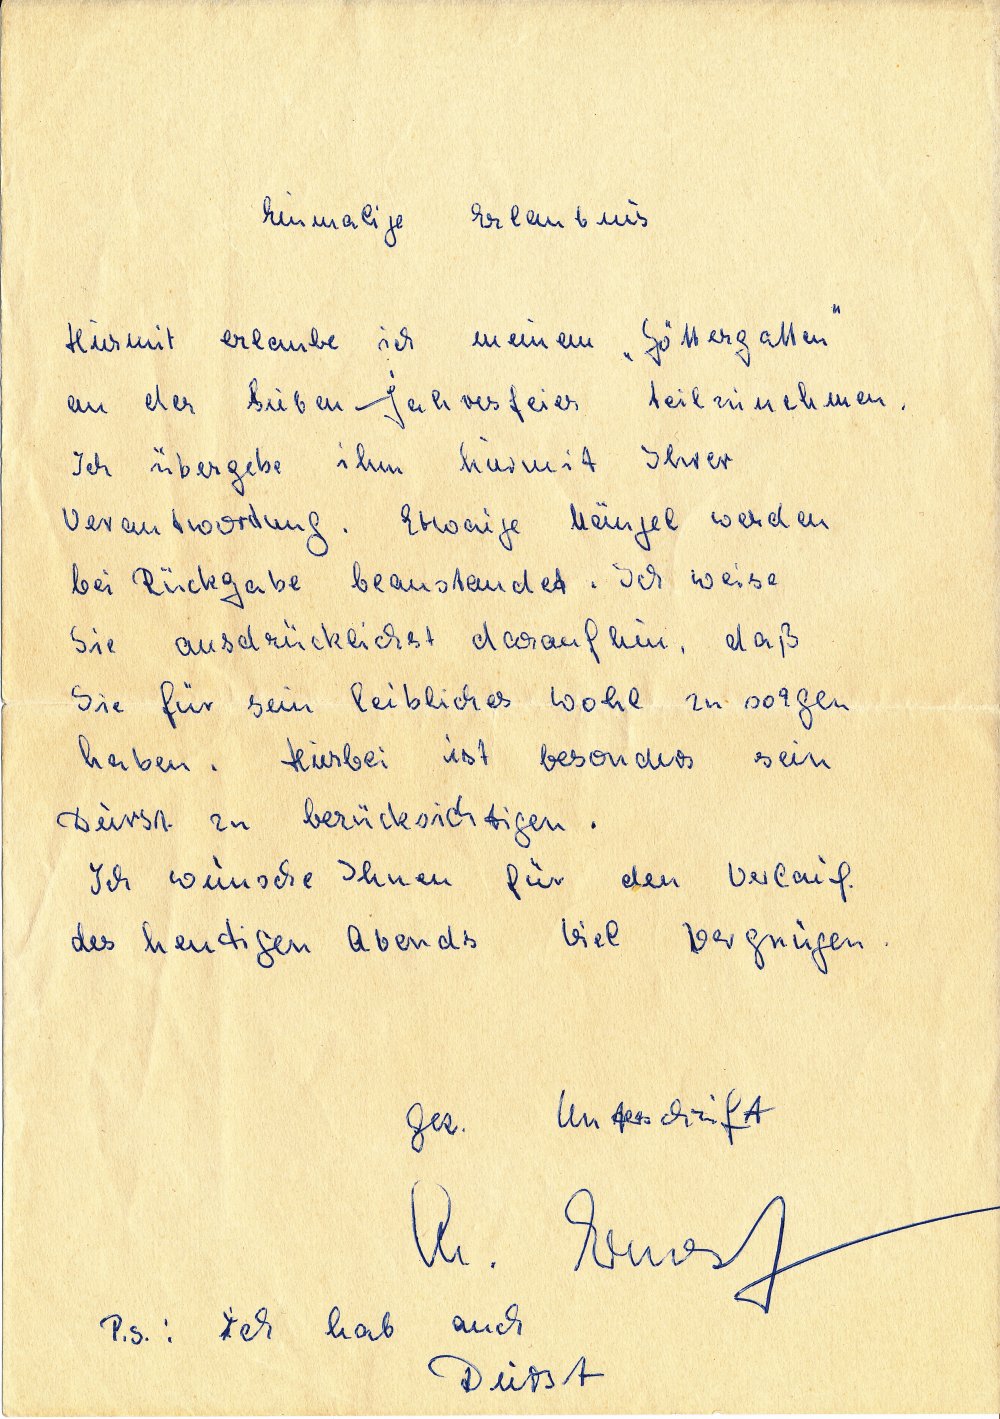 Einmalige Erlaubnis
Hiermit erlaube ich meinem „Göttergatten"
an der Sieben-Jahresfeier teilzunehmen.
Ich übergebe ihn hiermit Ihrer
Verantwortung. Etwaige Mängel werden
bei Rückgabe beanstandet. Ich weise
Sie ausdrücklichst daraufhin, daß
Sie für sein leibliches Wohl zu sorgen
haben. Hierbei ist besonders sein
Durst zu berücksichtigen.
Ich wünsche Ihnen für den Verlauf
des heutigen Abends viel Vergnügen.
gez. Unterschrift
P.s.: Ich hab auch
Durst